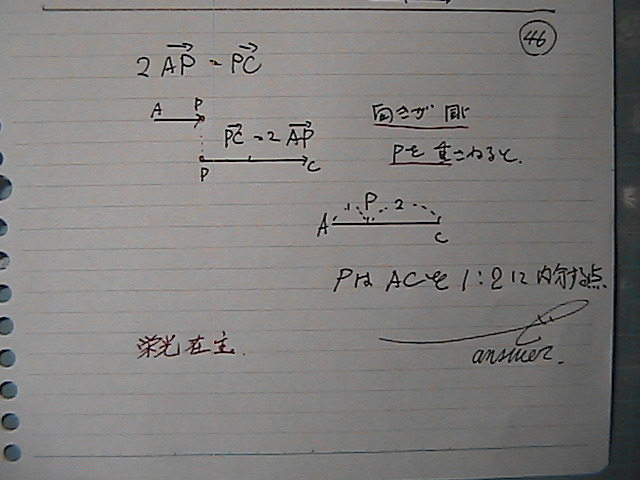 46
2AP = PC
A P
PC = 2AP
P C
向きが同じ
Pを重さねると、
1 P 2
A C
PはACを1:2に内分する点
answer.
栄光在主.